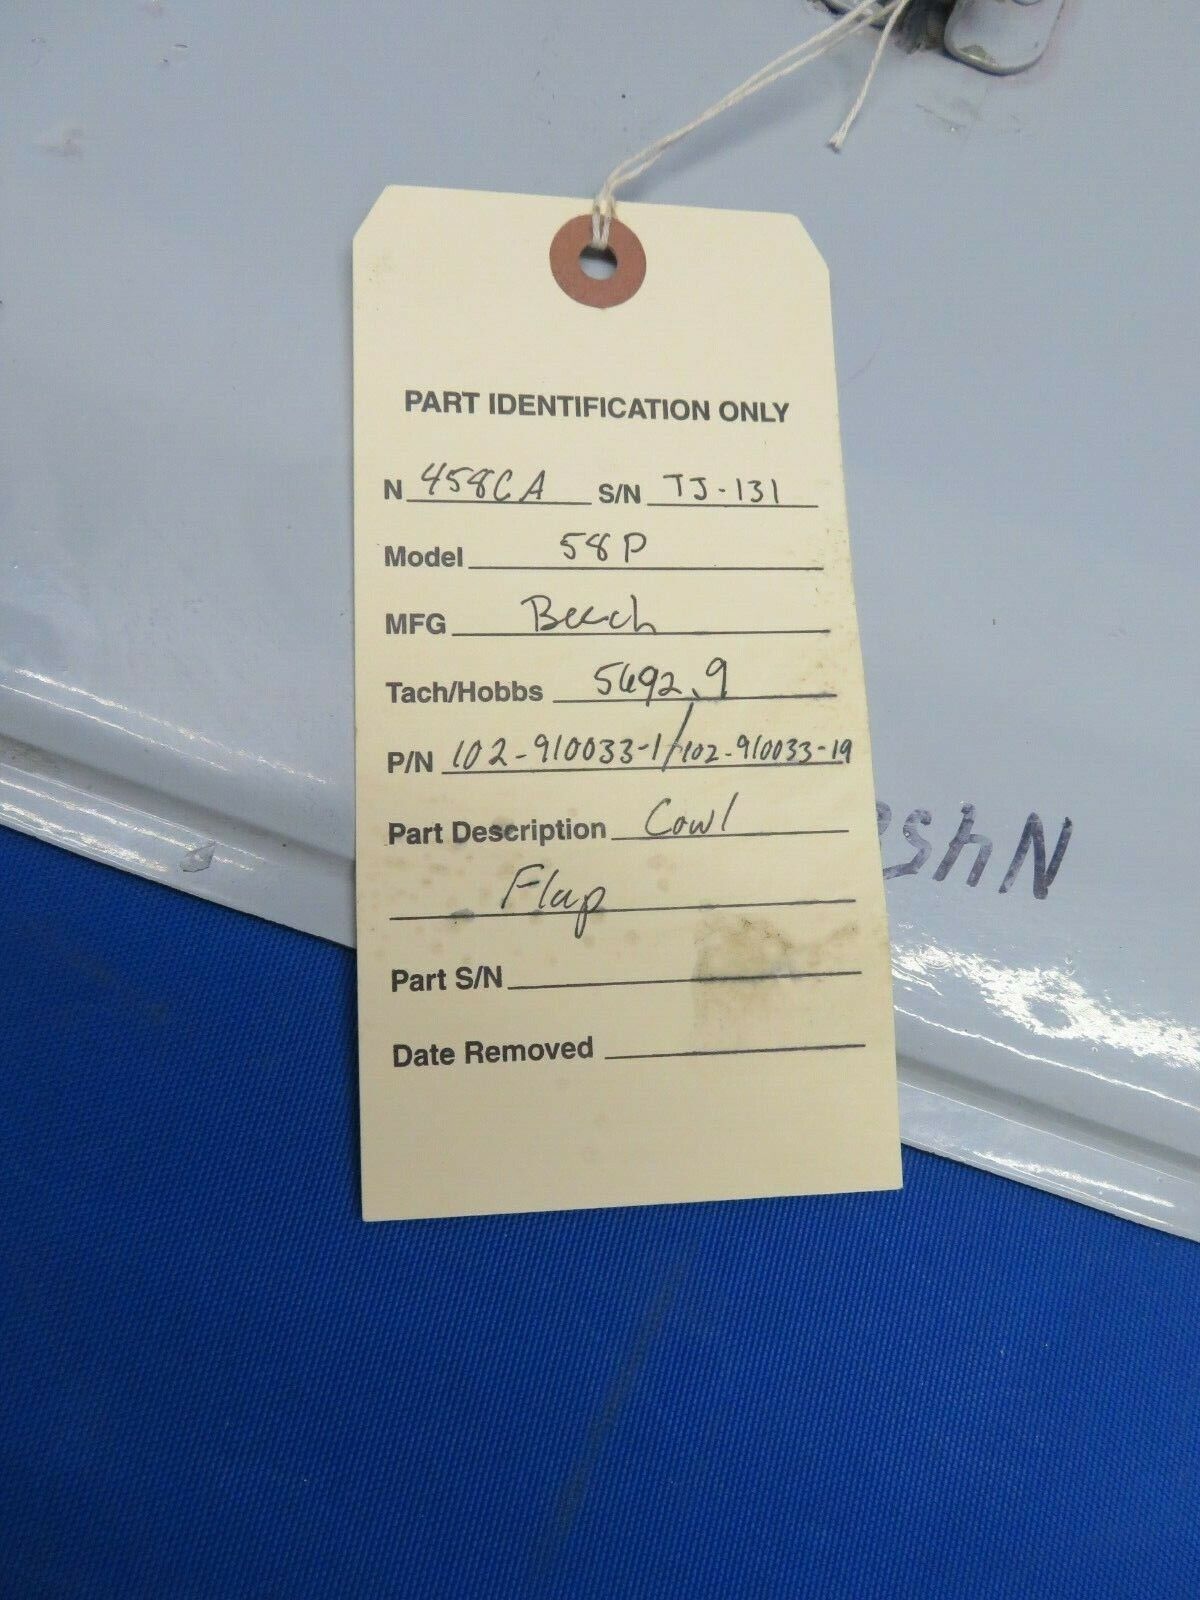 PART IDENTIFICATION ONLY
N 458CA S/N TJ-131
Model 58P
MFG Beech
Tach/Hobbs 5692.9
P/N 102-910033-1/102-910033-19
Part Description Cowl
Flap
Part S/N
Date Removed
N458